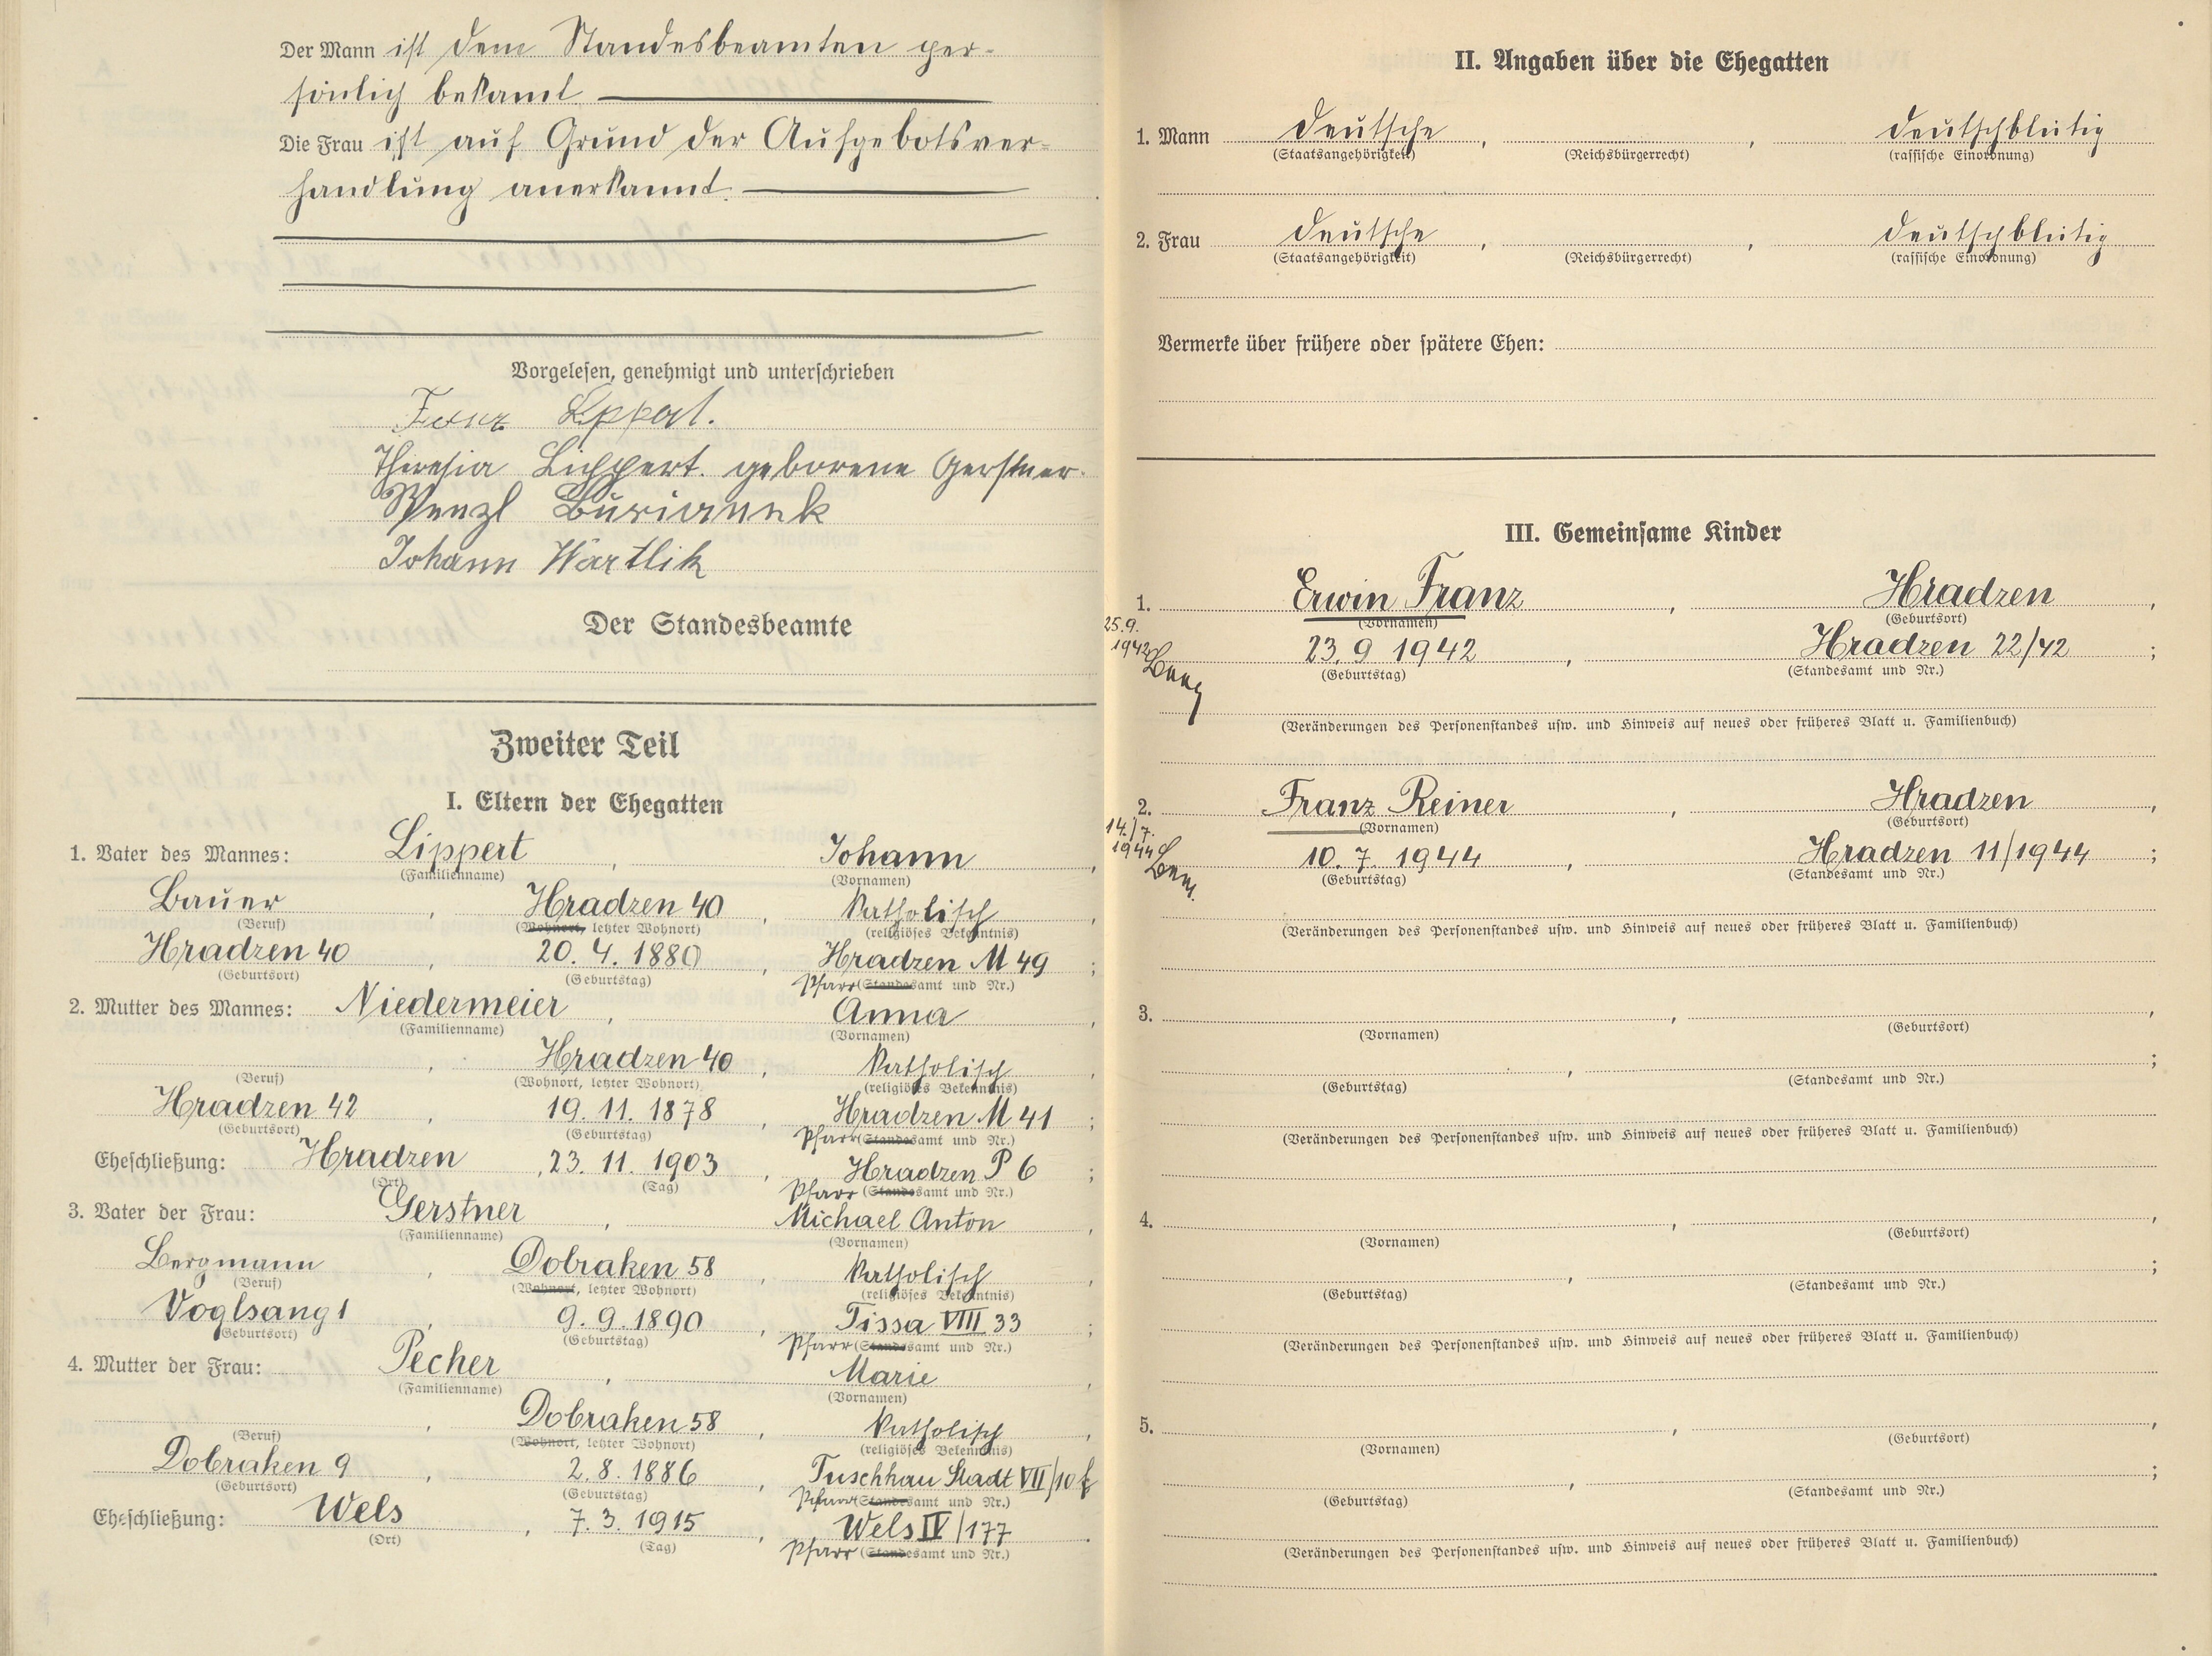 Der Mann ist dem Standesbeamten per-
sönlich bekannt.
Die Frau ist auf Grund der Aufgebotsver-
handlung anerkannt.
Vorgelesen, genehmigt und unterschrieben
Franz Lippert.
Theresia Lippert. geborene Gerstner.
Wenzl Burianek
Johann Wartlik
Der Standesbeamte
Zweiter Teil
I. Eltern der Ehegatten
1. Vater des Mannes: Lippert, Johann,
(Familienname) (Vornamen)
Bauer, Hradzen 40, katholisch,
(Beruf) (Wohnort, letzter Wohnort) (religiöses Bekenntnis)
Hradzen 40, 20. 4. 1880, Hradzen M 49;
(Geburtsort) (Geburtstag) Pfarr (Standesamt und Nr.)
2. Mutter des Mannes: Niedermeier, Anna,
(Familienname) (Vornamen)
, Hradzen 40, katholisch,
(Beruf) (Wohnort, letzter Wohnort) (religiöses Bekenntnis)
Hradzen 42, 19. 11. 1878, Hradzen M 41;
(Geburtsort) (Geburtstag) Pfarr (Standesamt und Nr.)
Eheschließung: Hradzen, 23. 11. 1903, Hradzen P 6;
(Ort) (Tag) Pfarr (Standesamt und Nr.)
3. Vater der Frau: Gerstner, Michael Anton,
(Familienname) (Vornamen)
Bergmann, Dobraken 58, katholisch,
(Beruf) (Wohnort, letzter Wohnort) (religiöses Bekenntnis)
Voglsang 1, 9. 9. 1890, Tissa VIII 33;
(Geburtsort) (Geburtstag) Pfarr (Standesamt und Nr.)
4. Mutter der Frau: Pecher, Marie,
(Familienname) (Vornamen)
, Dobraken 58, katholisch,
(Beruf) (Wohnort, letzter Wohnort) (religiöses Bekenntnis)
Dobraken 9, 2. 8. 1886, Tuschkau Stadt VII/10
(Geburtsort) (Geburtstag) Pfarr (Standesamt und Nr.)
Eheschließung: Wels, 7. 3. 1915, Wels IV/177.
(Ort) (Tag) Pfarr (Standesamt und Nr.)
II. Angaben über die Ehegatten
1. Mann deutsche, , deutschblütig
(Staatsangehörigkeit) (Reichsbürgerrecht) (rassische Einordnung)
2. Frau deutsche, , deutschblütig
(Staatsangehörigkeit) (Reichsbürgerrecht) (rassische Einordnung)
Vermerke über frühere oder spätere Ehen:
III. Gemeinsame Kinder
1. Erwin Franz, Hradzen,
(Vornamen) (Geburtsort)
25.9.
1942
23. 9 1942, Hradzen 22/42;
(Geburtstag) (Standesamt und Nr.)
(Veränderungen des Personenstandes usw. und Hinweis auf neues oder früheres Blatt u. Familienbuch)
2. Franz Reiner, Hradzen,
(Vornamen) (Geburtsort)
14./7.
1944
10. 7. 1944, Hradzen 11/1944;
(Geburtstag) (Standesamt und Nr.)
(Veränderungen des Personenstandes usw. und Hinweis auf neues oder früheres Blatt u. Familienbuch)
3. , ,
(Vornamen) (Geburtsort)
, ;
(Geburtstag) (Standesamt und Nr.)
(Veränderungen des Personenstandes usw. und Hinweis auf neues oder früheres Blatt u. Familienbuch)
4. , ,
(Vornamen) (Geburtsort)
, ;
(Geburtstag) (Standesamt und Nr.)
(Veränderungen des Personenstandes usw. und Hinweis auf neues oder früheres Blatt u. Familienbuch)
5. , ,
(Vornamen) (Geburtsort)
, ;
(Geburtstag) (Standesamt und Nr.)
(Veränderungen des Personenstandes usw. und Hinweis auf neues oder früheres Blatt u. Familienbuch)